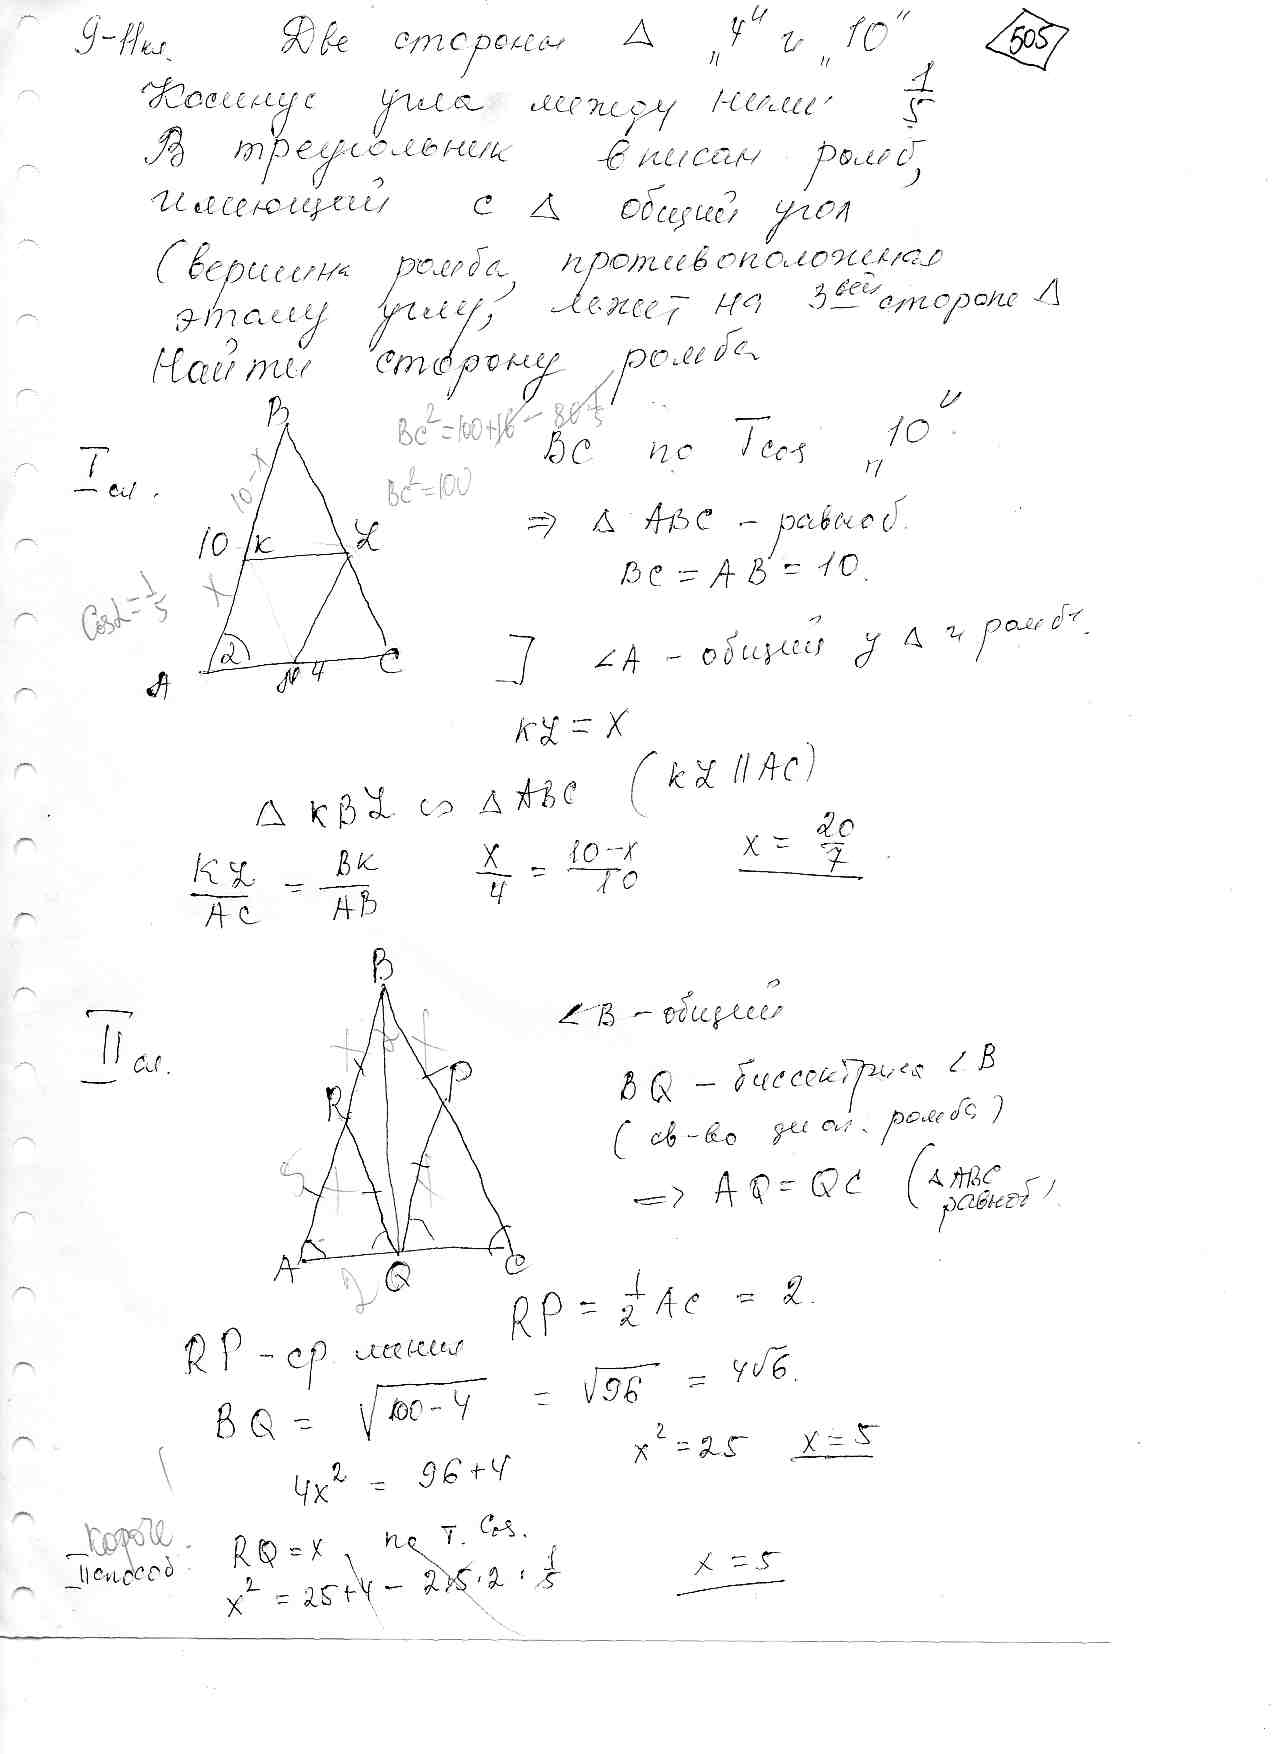 9-11 кл. Две стороны Δ „4" и „10" 505
Косинус угла между ними 1/5
В треугольник вписан ромб,
имеющий с Δ общий угол
(вершина ромба, противоположная
этому углу, лежит на 3-ей стороне Δ
Найти сторону ромба
BC² = 100 + 16 - 80·1/5
BC² = 100
BC по Tcos „10"
I сл.
⇒ Δ ABC - равноб.
BC = AB = 10.
B
10-x
10 K L
x
Cos α = 1/5
A α N 4 C
] ∠A - общий у Δ и ромба.
KL = x
Δ KBL ∾ Δ ABC (KL || AC)
KL/AC = BK/AB x/4 = (10-x)/10 x = 20/7
II сл.
B
x x
R P
5
A Q C
2
∠B - общий
BQ - биссектриса ∠B
(св-во диаг. ромба)
⇒ AQ = QC (Δ ABC равноб)
RP - ср линия RP = 1/2 AC = 2.
BQ = √(100-4) = √96 = 4√6.
4x² = 96+4 x² = 25 x = 5
Короче.
II способ. RQ = x, по т. Cos.
x² = 25+4 - 2·5·2·1/5 x = 5